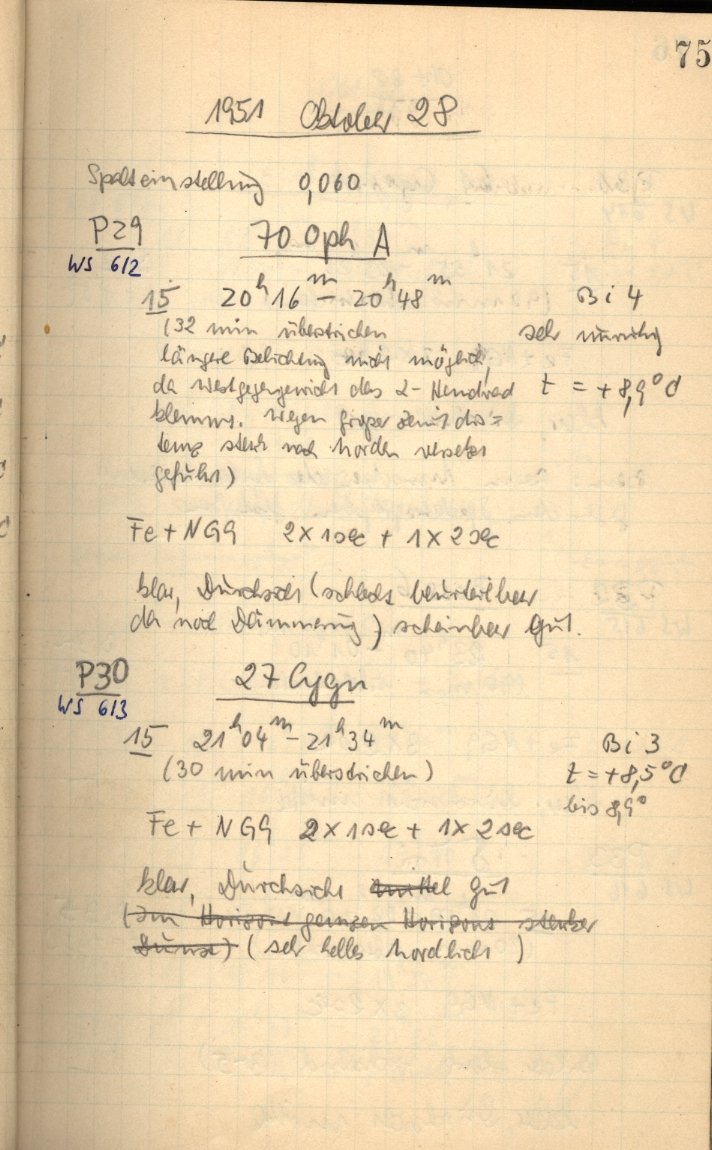 75
1951 Oktober 28
Spalteinstellung 0,060
P29 70 Oph A
WS 612
15 20h 16m – 20h 48m Bi 4
(32 min überstrichen sehr unruhig
längere Belichtung nicht möglich,
da Westgegengewicht das 2- Handrad t = +8,9°C
klemmt. Wegen großer Zenitdis=
tanz stark nach Norden versetzt
geführt)
Fe + NGG 2 x 1 sec + 1 x 2 sec
klar, Durchsicht (schlecht beurteilbar
da noch Dämmerung) scheinbar gut.
P30 27 Cygn
WS 613
15 21h 04m – 21h 34m Bi 3
(30 min überstrichen) t = +8,5°C
bis 8,9°
Fe + NGG 2 x 1 sec + 1 x 2 sec
klar, Durchsicht mittel gut
(Im Horizont ganzen Horizont starker
Dunst) (sehr helles Nordlicht)